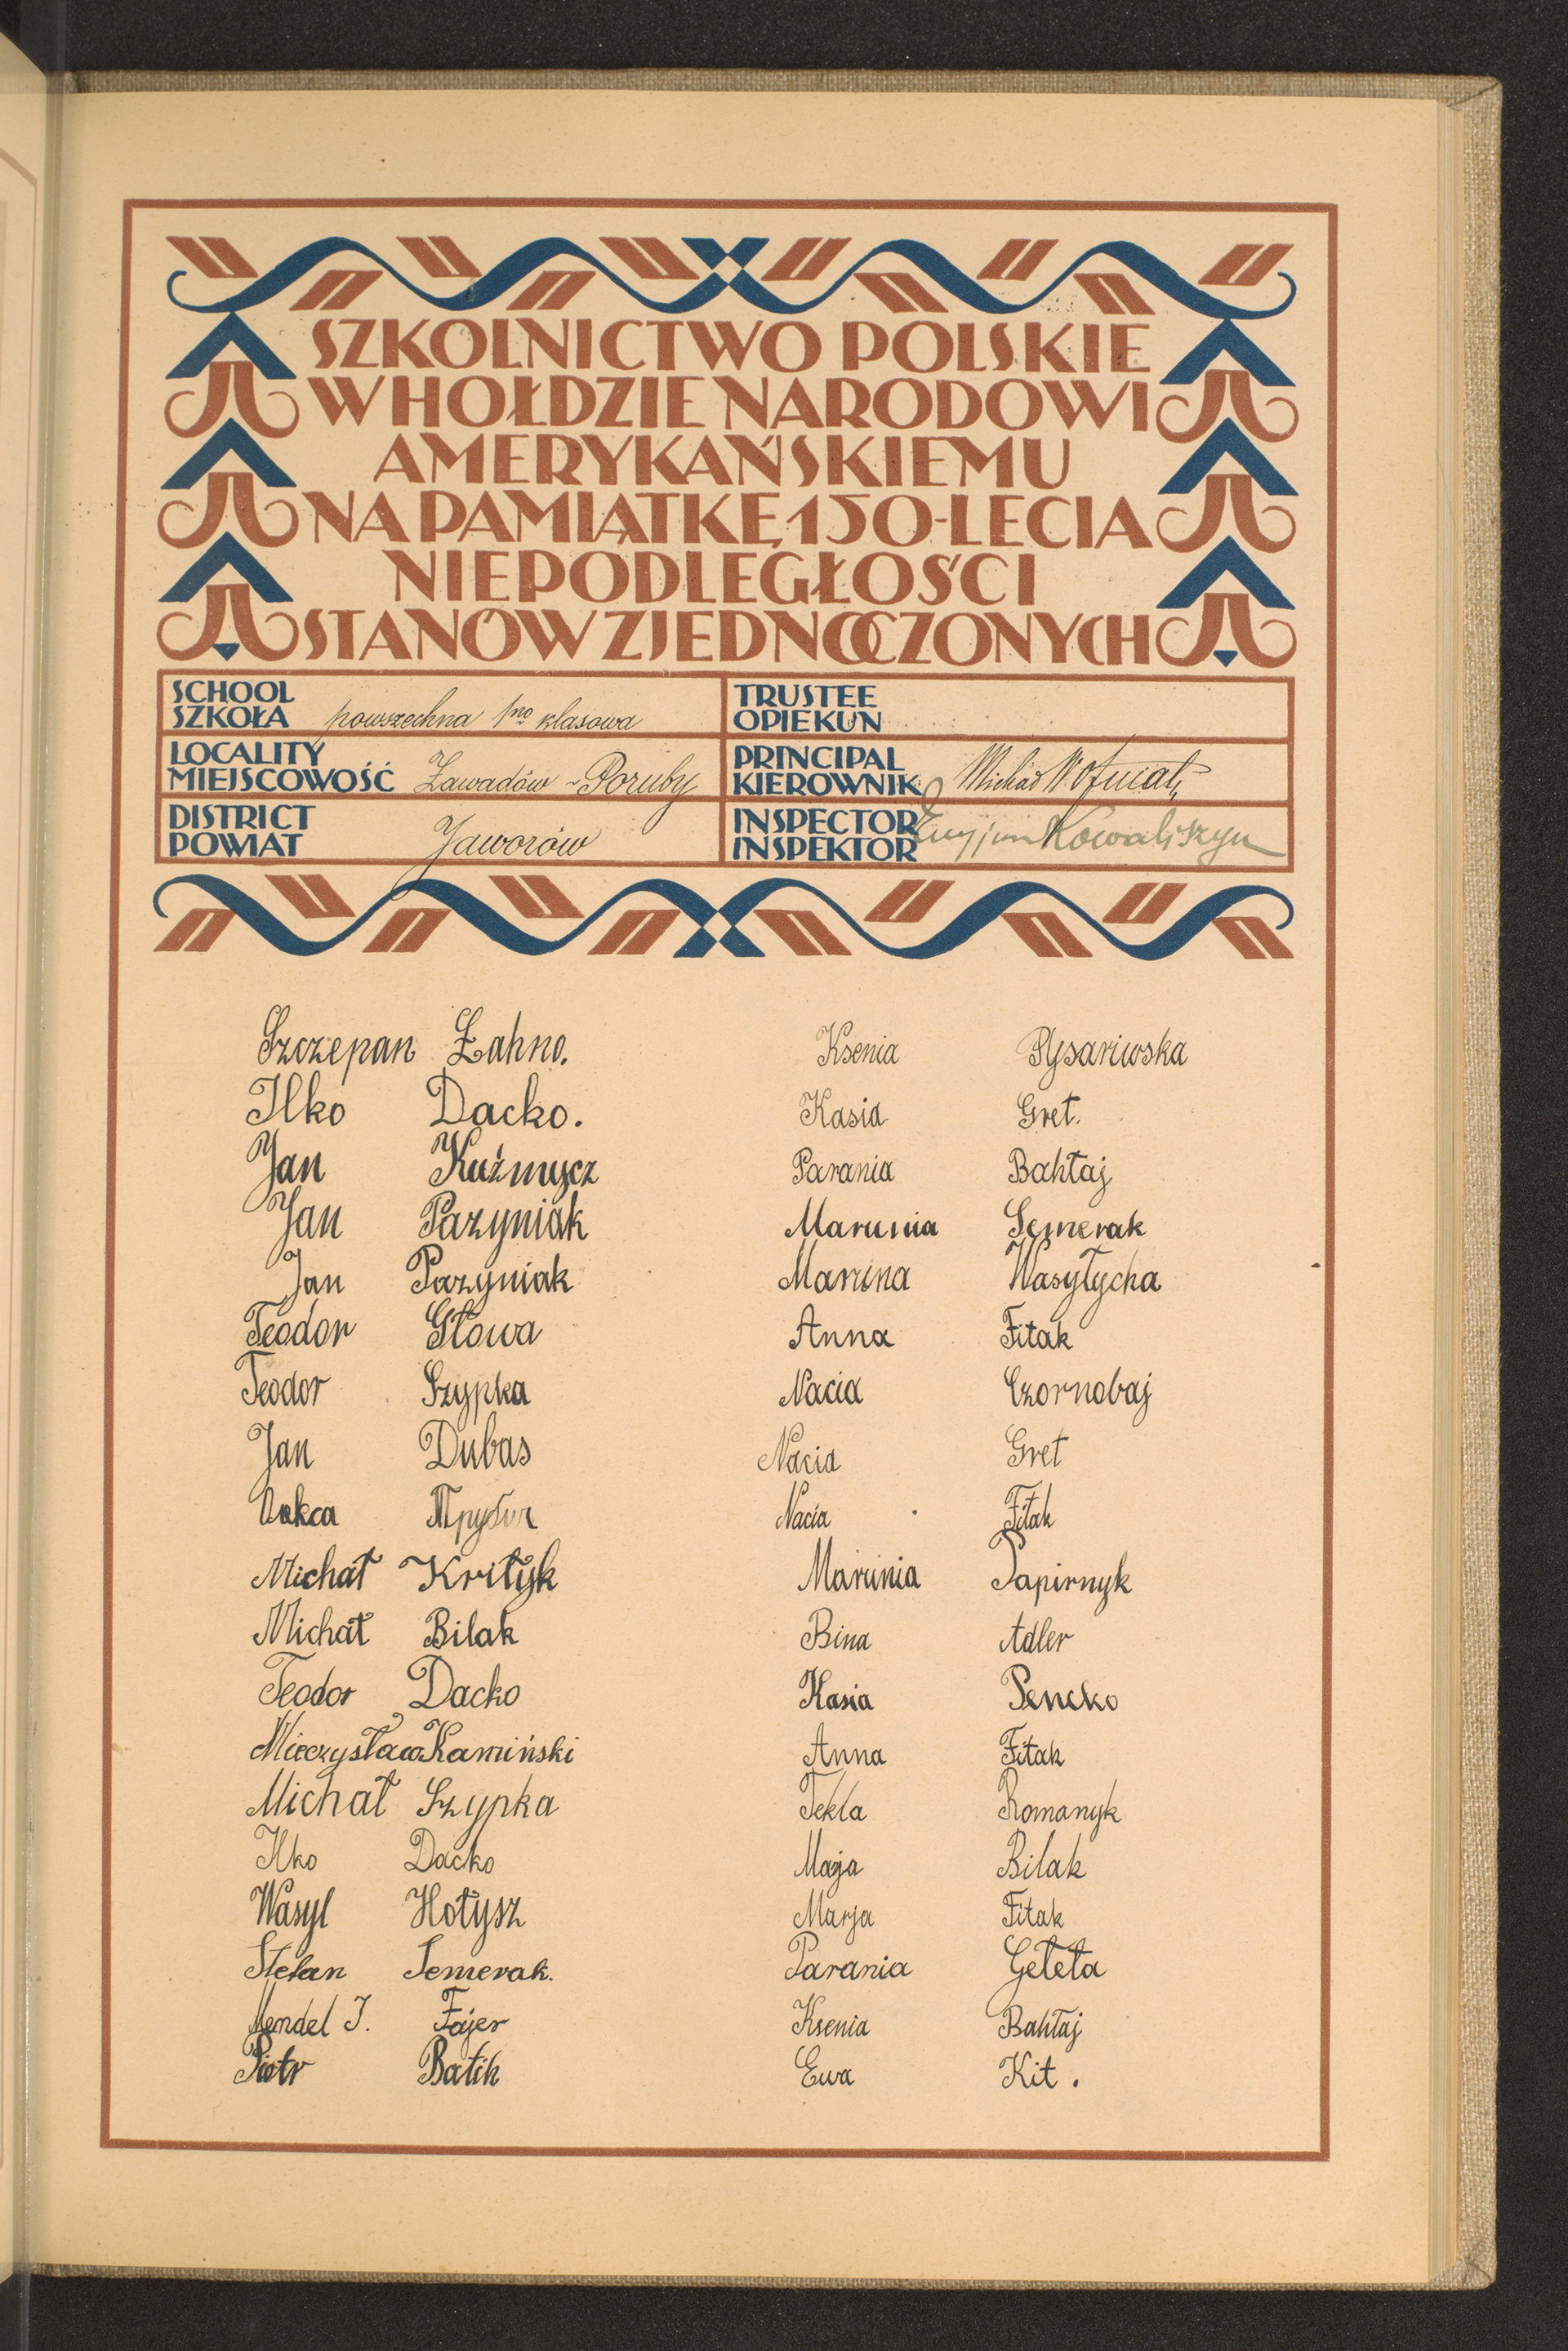 SZKOLNICTWO POLSKIE
W HOŁDZIE NARODOWI
AMERYKAŃSKIEMU
NA PAMIĄTKĘ 150-LECIA
NIEPODLEGŁOŚCI
STANÓW ZJEDNOCZONYCH
SCHOOL
SZKOŁA powszechna 1no klasowa
TRUSTEE
OPIEKUN
LOCALITY
MIEJSCOWOŚĆ Zawadów - Poruby
PRINCIPAL
KIEROWNIK Michał
DISTRICT
POWIAT Jaworów
INSPECTOR
INSPEKTOR Kowaliszyn
Szczepan Łahno.
Ilko Dacko.
Jan Kuźmycz
Jan Pazyniak
Jan Pazyniak
Teodor Głowa
Teodor Szypka
Jan Dubas
Michał Kriłyk
Michał Bilak
Teodor Dacko
Mieczysław Kamiński
Michał Szypka
Ilko Dacko
Wasyl Hołysz
Stefan Semerak.
Mendel J. Fajer
Piotr Batih
Ksenia Pysariwska
Kasia Gret.
Parania Bahłaj
Marunia Semerak
Marina Wasyłycha
Anna Fitak
Nacia Czornobaj
Nacia Gret
Nacia Fitak
Marunia Papirnyk
Bina Adler
Kasia Pencko
Anna Fitak
Tekla Romanyk
Maja Bilak
Marja Fitak
Parania Geleta
Ksenia Bahłaj
Ewa Kit.